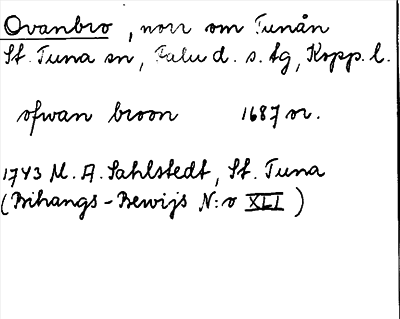 Ovanbro, norr om Tunån
St. Tuna sn, Falu d. s. tg, Kopp. l.
ofwan broon 1687 or.
1743 M. A. Sahlstedt, St. Tuna
(Bihangs-Bewijs N:o XLI)